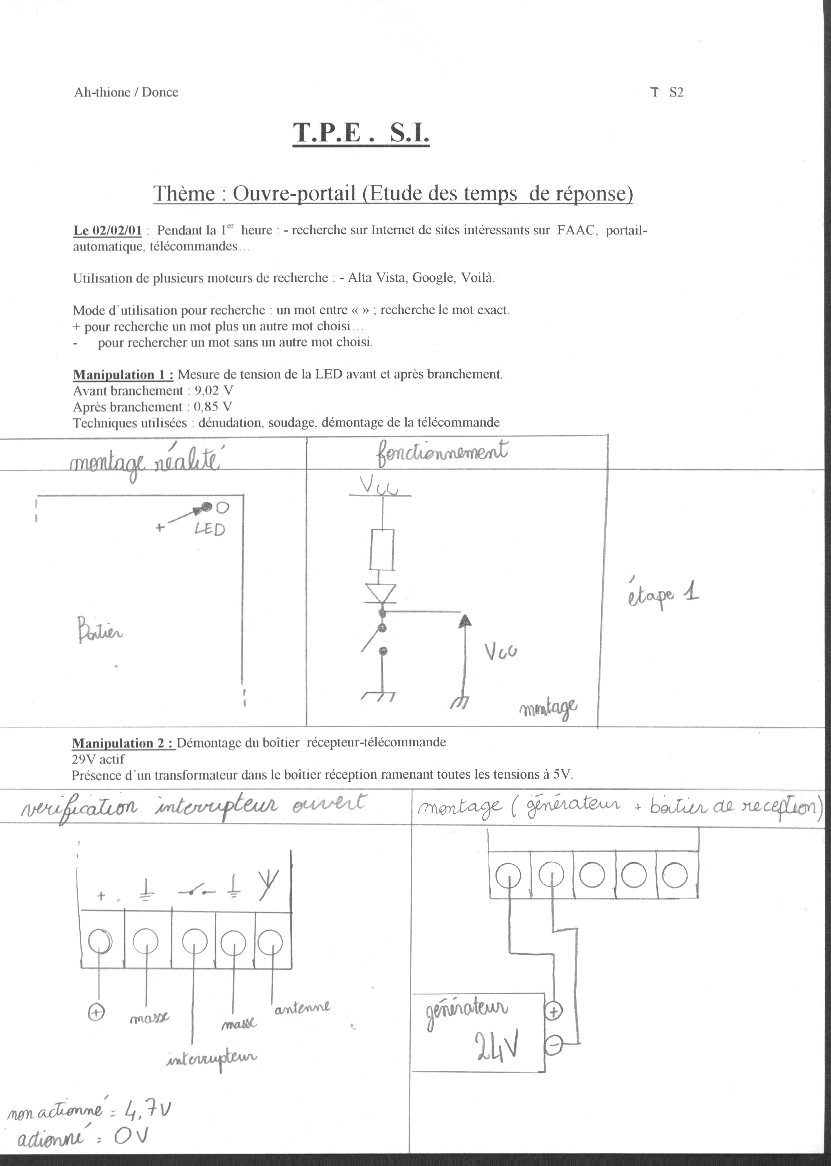 Ah-thione / Donce T S2
T.P.E . S.I.
Thème : Ouvre-portail (Etude des temps de réponse)
Le 02/02/01 : Pendant la 1er heure : - recherche sur Internet de sites intéressants sur FAAC, portail-
automatique, télécommandes...
Utilisation de plusieurs moteurs de recherche : - Alta Vista, Google, Voilà.
Mode d'utilisation pour recherche : un mot entre « » ; recherche le mot exact.
+ pour recherche un mot plus un autre mot choisi...
- pour rechercher un mot sans un autre mot choisi.
Manipulation 1 : Mesure de tension de la LED avant et après branchement.
Avant branchement : 9,02 V
Après branchement : 0,85 V
Techniques utilisées : dénudation, soudage, démontage de la télécommande
montage réalité
fonctionnement
+ LED
Boitier
Vcc
Vcc
montage
étape 1
Manipulation 2 : Démontage du boîtier récepteur-télécommande
29V actif
Présence d'un transformateur dans le boîtier réception ramenant toutes les tensions à 5V.
verification interrupteur ouvert
montage ( générateur + boitier de reception)
+
+
masse
interrupteur
masse
antenne
non actionné = 4,7V
actionné = 0V
générateur
24V
+
-